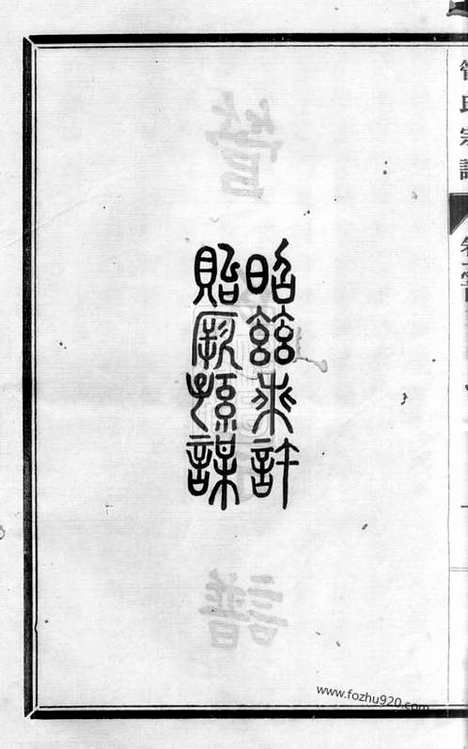 氏宗譜
昭茲來許
貽厥孫謀
www.fozhu920.com